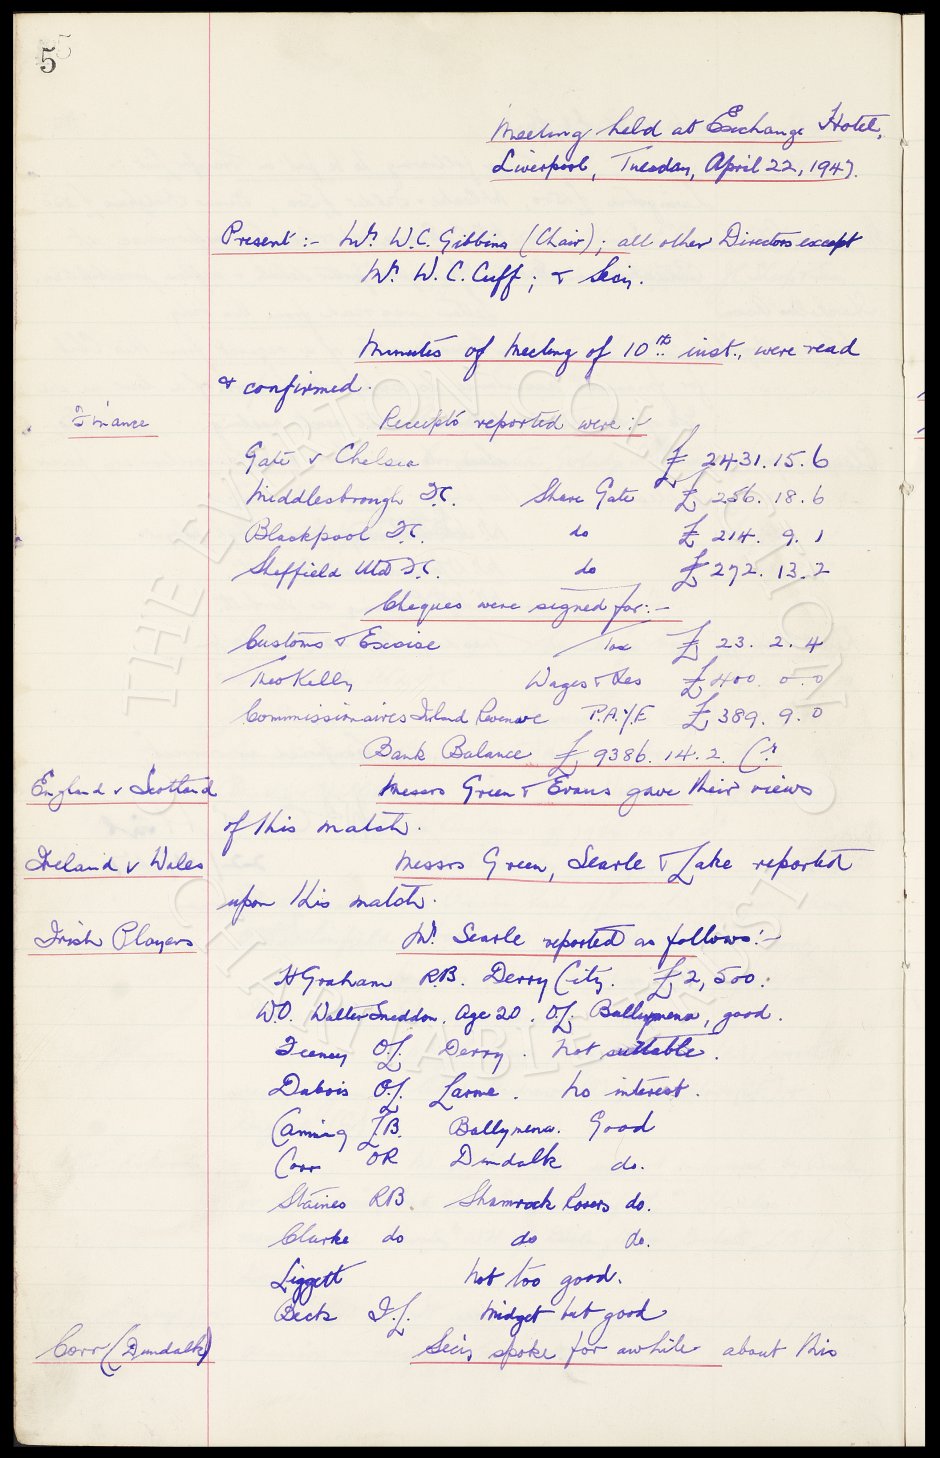 5
Meeting held at Exchange Hotel,
Liverpool, Tuesday, April 22, 1947.
Present :- Mr. W.C. Gibbins (Chair); all other Directors except
Mr. W. C. Cuff; & Secy.
Minutes of Meeting of 10th inst., were read
& confirmed.
Finance
Receipts reported were :-
Gate v Chelsea £ 2431. 15. 6
Middlesbrough F.C. Share Gate £ 256. 18. 6
Blackpool F.C. do £ 214. 9. 1
Sheffield Utd F.C. do £ 272. 13. 2
Cheques were signed for :-
Customs & Excise Tax £ 23. 2. 4
Theo Kelly Wages & £ 400. 0. 0
Commissionaires Inland Revenue P.A.Y.E £ 389. 9. 0
Bank Balance £ 9386. 14. 2. Cr.
England v Scotland
Messrs Green & Evans gave their views
of this match.
Ireland v Wales
Messrs Green, Searle & Lake reported
upon this match.
Irish Players
Mr. Searle reported as follows :-
H Graham R.B. Derry City. £2,500.
W.O. Walter Sneddon. Age 20. O.L. Ballymena, good.
Feeney O.L. Derry. Not suitable.
Dubois O.L. Larne. No interest.
Canning L.B. Ballymena. Good
Corr OR Dundalk do.
Staines R.B. Shamrock Rovers do.
Clarke do do do.
Liggett Not too good.
Beck I.L. Midget but good
Corr (Dundalk)
Secy spoke for awhile about this
THE EVERTON COLLECTION
CHARITABLE TRUST